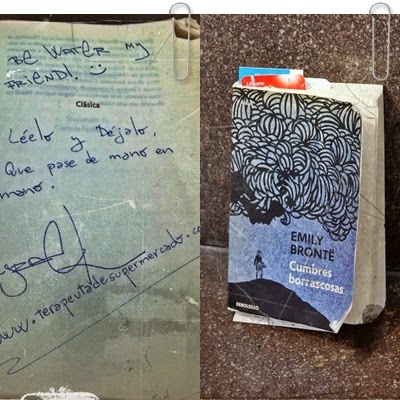 BE WATER MY
FRIEND!
Clásica
Léelo y Déjalo,
Que pase de mano en
mano.
www.terapeutadesupermercado.co
EMILY
BRONTË
Cumbres
borrascosas
DEBOLSILLO